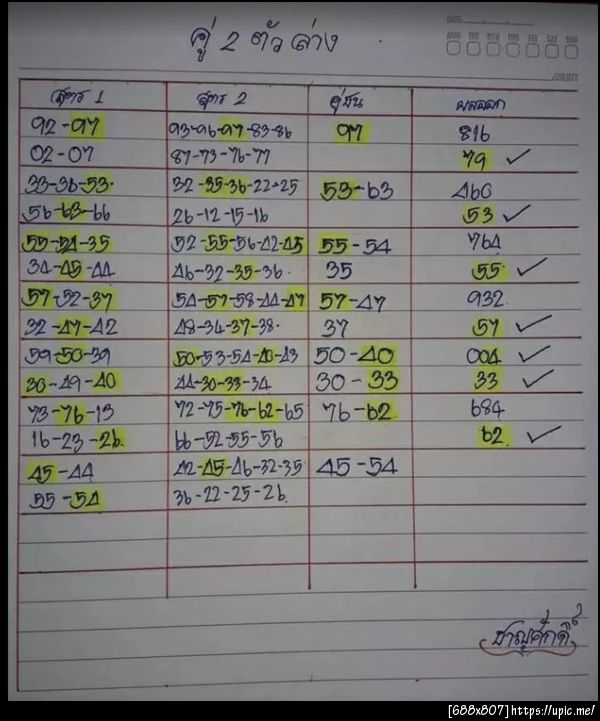 คู่ 2 ตัวล่าง
DATE
MON TUE WED THU FRI SAT SUN
สูตร 1 สูตร 2 คู่ชน ผลออก
92-97 93-96-97-83-86 97 816
02-07 87-73-76-77 79 ✓
33-36-53 32-35-36-22-25 53-63 460
56-63-66 26-12-15-16 53 ✓
55-54-35 52-55-56-42-45 55-54 764
34-45-44 46-32-35-36 35 55 ✓
57-52-37 54-57-58-44-47 57-47 932
32-47-42 48-34-37-38 37 57 ✓
59-50-39 50-53-54-40-43 50-40 004 ✓
30-49-40 44-30-33-34 30-33 33 ✓
73-76-13 72-75-76-62-65 76-62 684
16-23-26 66-52-55-56 62 ✓
45-44 42-45-46-32-35 45-54
55-54 36-22-25-26
ชาญศักดิ์
[688x807]https://upic.me/